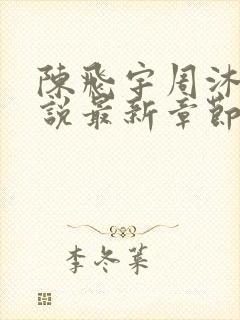 陳飛宇周沐
說最新章節
李冬葉